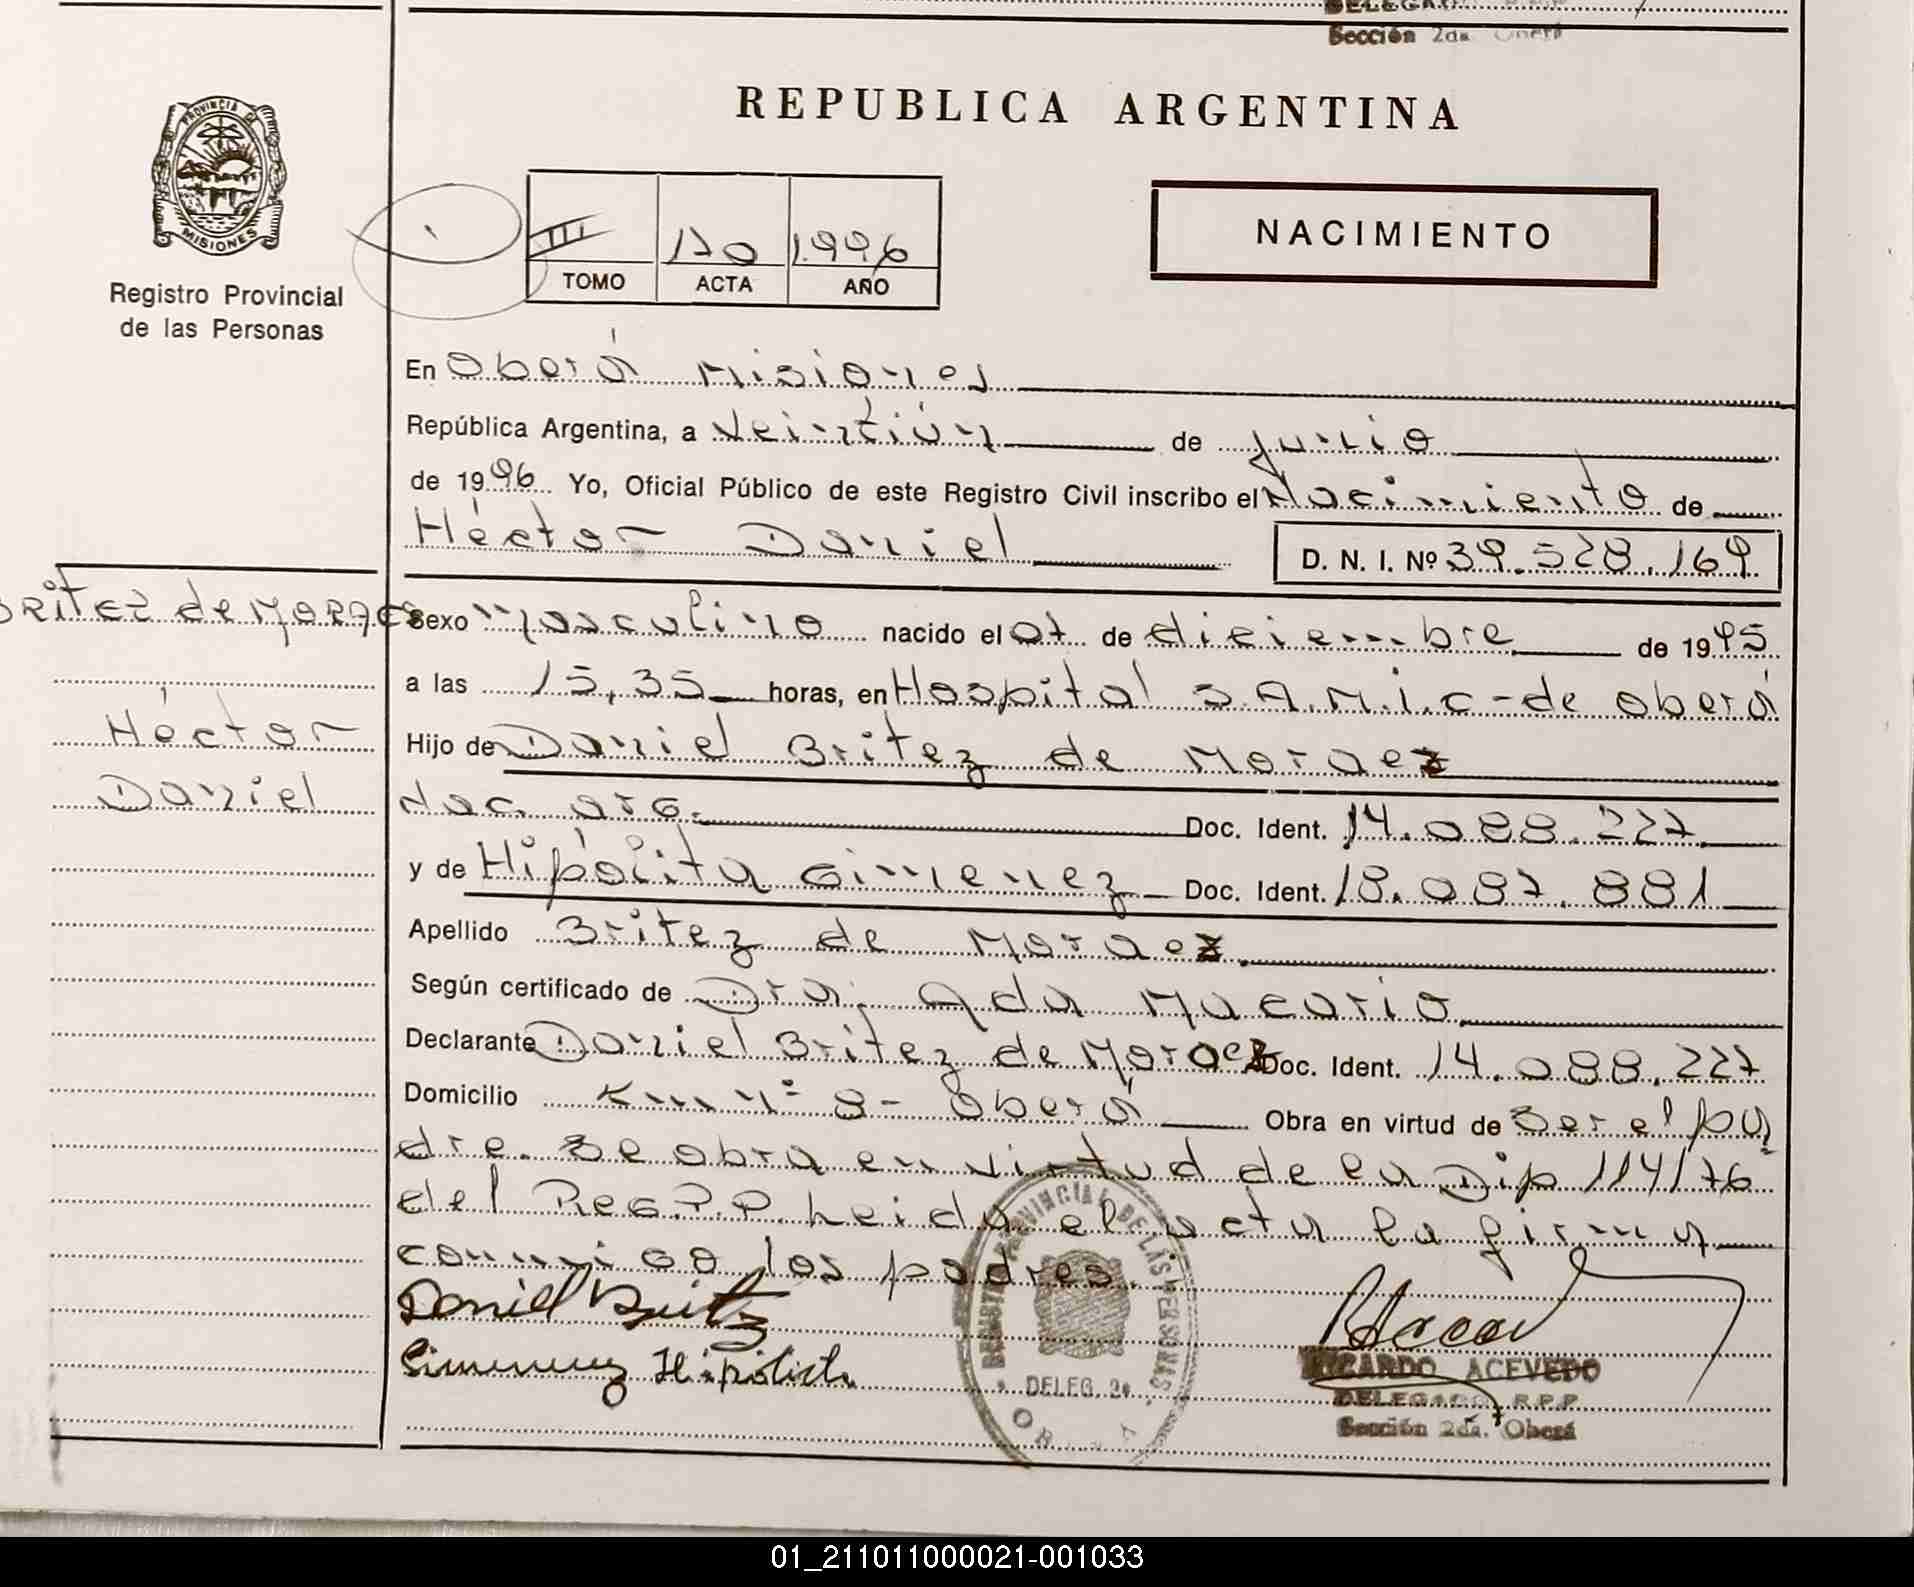 Sección 2da. Oberá
REPUBLICA ARGENTINA
PROVINCIA DE
MISIONES
Registro Provincial
de las Personas
III 170 1.996
TOMO ACTA AÑO
NACIMIENTO
En Oberá Misiones
República Argentina, a Veintiún de junio
de 1996 Yo, Oficial Público de este Registro Civil inscribo el Nacimiento de
Héctor Daniel
D. N. I. Nº 39.528.169
Britez de Moraes
Héctor
Daniel
Sexo masculino nacido el 07 de diciembre de 1995
a las 15,35 horas, en Hospital S.A.M.I.C - de Oberá
Hijo de Daniel Britez de Moraez
nac. arg. Doc. Ident. 14.088.227
y de Hipólita Gimenez Doc. Ident. 18.087.881
Apellido Britez de Moraez
Según certificado de Dra. Ada Macario
Declarante Daniel Britez de Moraez Doc. Ident. 14.088.227
Domicilio Km nº 8 - Oberá Obra en virtud de Ser el pa
dre. Se obra en virtud de la Dip 114/76
del Reg.P.P. Leida el acta la firman
conmigo los padres.
Daniel Britez
Gimenez Hipólita
REGISTRO PROVINCIAL DE LAS PERSONAS
DELEG. 2ª
RICARDO ACEVEDO
DELEGADO R.P.P.
Sección 2da. Oberá
01_211011000021-001033